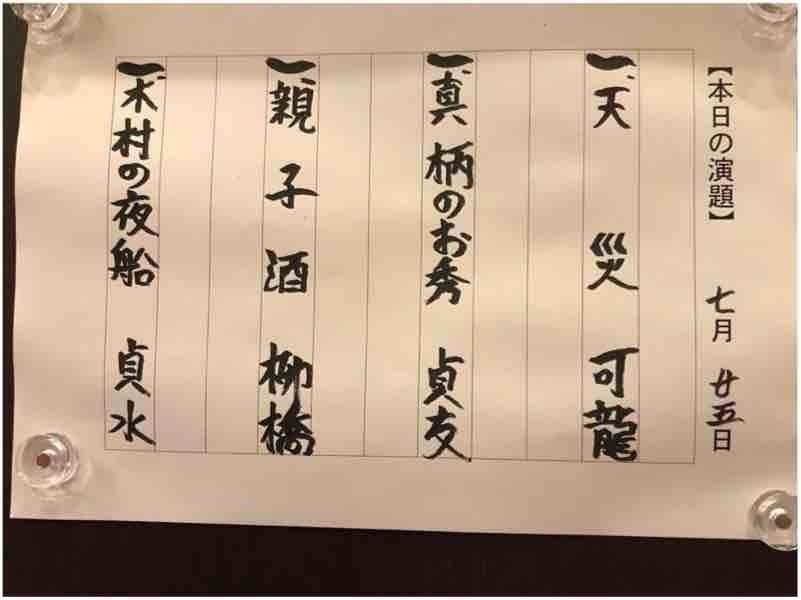 【本日の演題】 七月廿五日
一、天災 可龍
一、真柄のお秀 貞友
一、親子酒 柳橋
一、木村の夜船 貞水